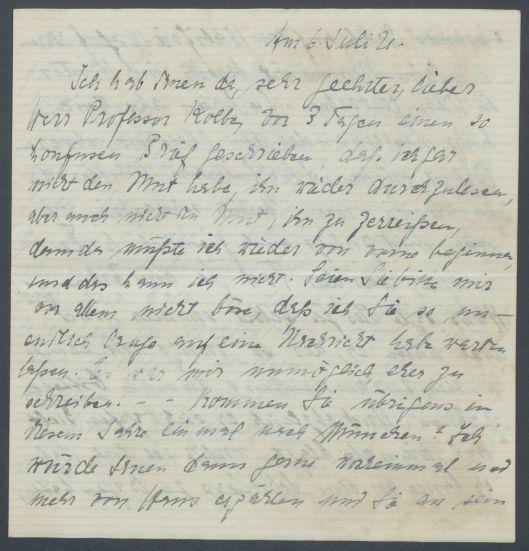 Am 6. Juli 21.
Ich hab Ihnen da, sehr geehrter, lieber
Herr Professor Kolbe, vor 3 Tagen einen so
konfusen Brief geschrieben, daß ich gar
nicht den Mut habe, ihn wieder durchzulesen,
aber auch nicht den Mut, ihn zu zerreißen,
denn da müßte ich wieder von vorne beginnen,
und das kann ich nicht. Seien Sie bitte mir
vor allem nicht böse daß ich Sie so un-
endlich lange auf eine Nachricht habe warten
lassen. Es war mir unmöglich, eher zu
schreiben. - - Kommen Sie übrigens in
diesem Jahre einmal nach München? Ich
würde Ihnen dann gerne noch einmal und
mehr von Hans erzählen und Sie an sein